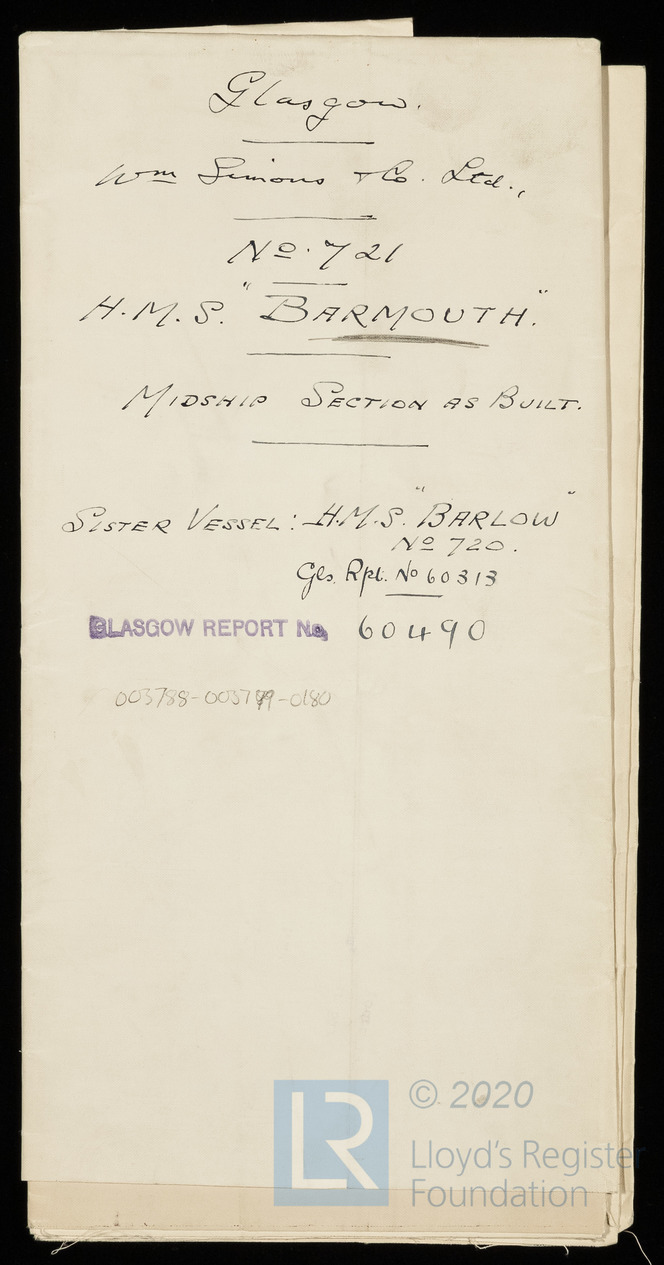 Glasgow.
Wm Simons & Co. Ltd.,
No. 721
H.M.S. "BARMOUTH".
MIDSHIP SECTION AS BUILT.
SISTER VESSEL: H.M.S. "BARLOW"
No 720.
Gls. Rpt. No 60313
GLASGOW REPORT No. 60490
003788-003799-0180
LR
© 2020
Lloyd's Register
Foundation